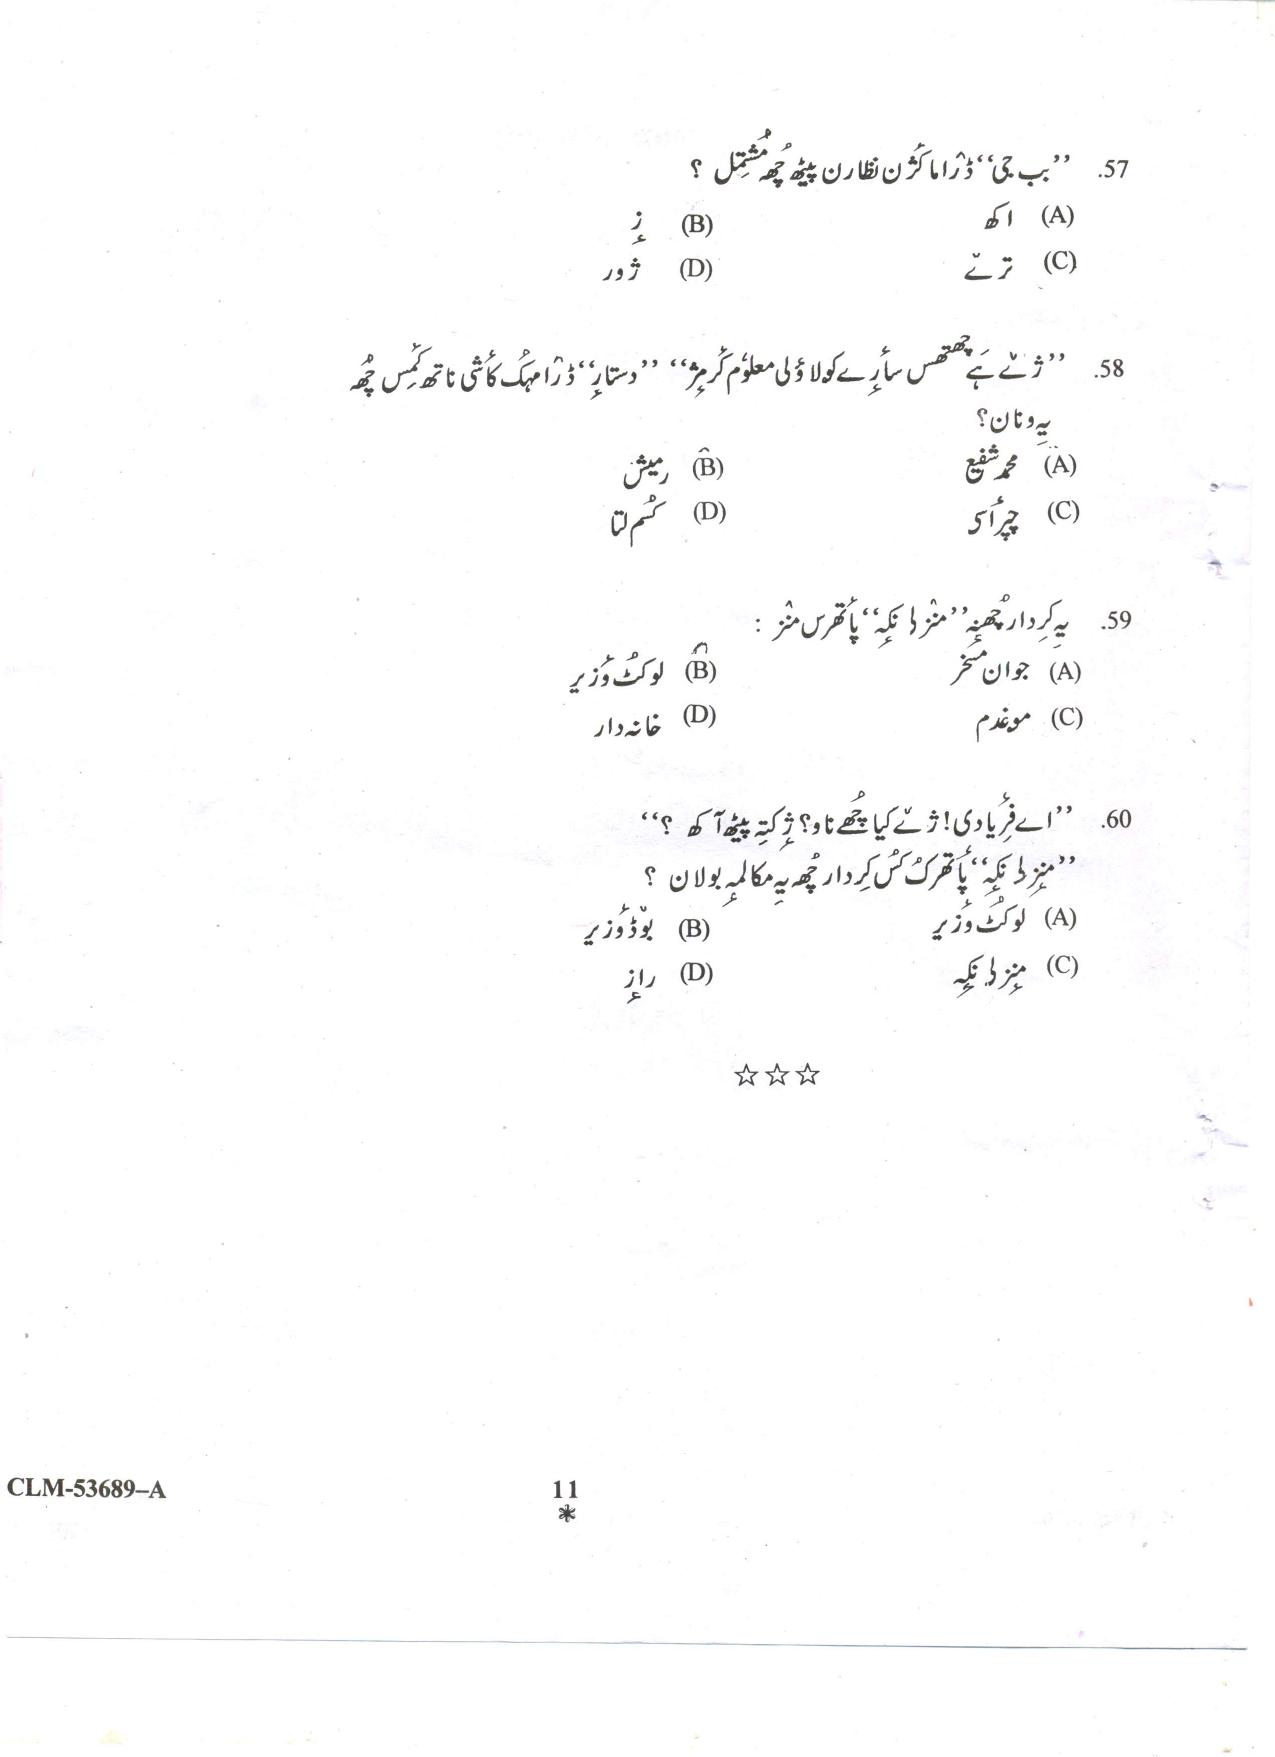 57. ’’بب جی‘‘ ڈراما کٔژن نظارن پیٹھ چھُ مُشتمِل ؟
(A) اکھ (B) زٕ
(C) ترٛے (D) ژور
58. ’’ژٕے ہَے چھتھس سارٕے کولاوٕلی معلوٗم گٔرمٕژ‘‘ ’’دستار‘‘ ڈراما ہُک کٲشی ناتھ کٔمِس چھُ
یہِ ونان؟
(A) محمد شفیع (B) رمیش
(C) چپرٲسی (D) کسُم لتا
59. یہِ کِردار چھُنہٕ ’’منٛز لٕ نکہٕ‘‘ پٲتھرس منٛز :
(A) جوان مسخر (B) لوکُٹ ؤزیر
(C) موغدم (D) خانہ دار
60. ’’اے فٔریادی! ژٕے کیا چھُے ناو؟ ژٕ کتہِ پیٹھ آکھ ؟‘‘
’’منٛز لٕ نکہٕ‘‘ پٲتھرُک کُس کِردار چھُ یہِ مکالمہٕ بولان ؟
(A) لوکُٹ ؤزیر (B) بوٚڈ ؤزیر
(C) منٛز لٕ نکہٕ (D) رازٕ
☆☆☆
CLM-53689–A 11
*